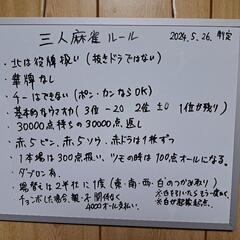 三人麻雀 ルール
2024.5.26. 制定
・北は役牌扱い (抜きドラではない)
・華牌なし
・チーはできない (ポン・カンならOK)
・基本的なウマオカ (3位 -20 2位 ±0 1位が残り)
・30000点持ちの30000点返し
・赤5ピン、赤5ソウ、赤ドラは1枚ずつ
・1本場は300点扱い、ツモの時は100点オールになる。
・ダブロン有。
・場替えは2半荘に1度 (東・南・西・白のつかみ取り)
※白を引いたらもう一度
※白が起家起点。
チョンボした場合、親・子関係なく
4000オール支払い。